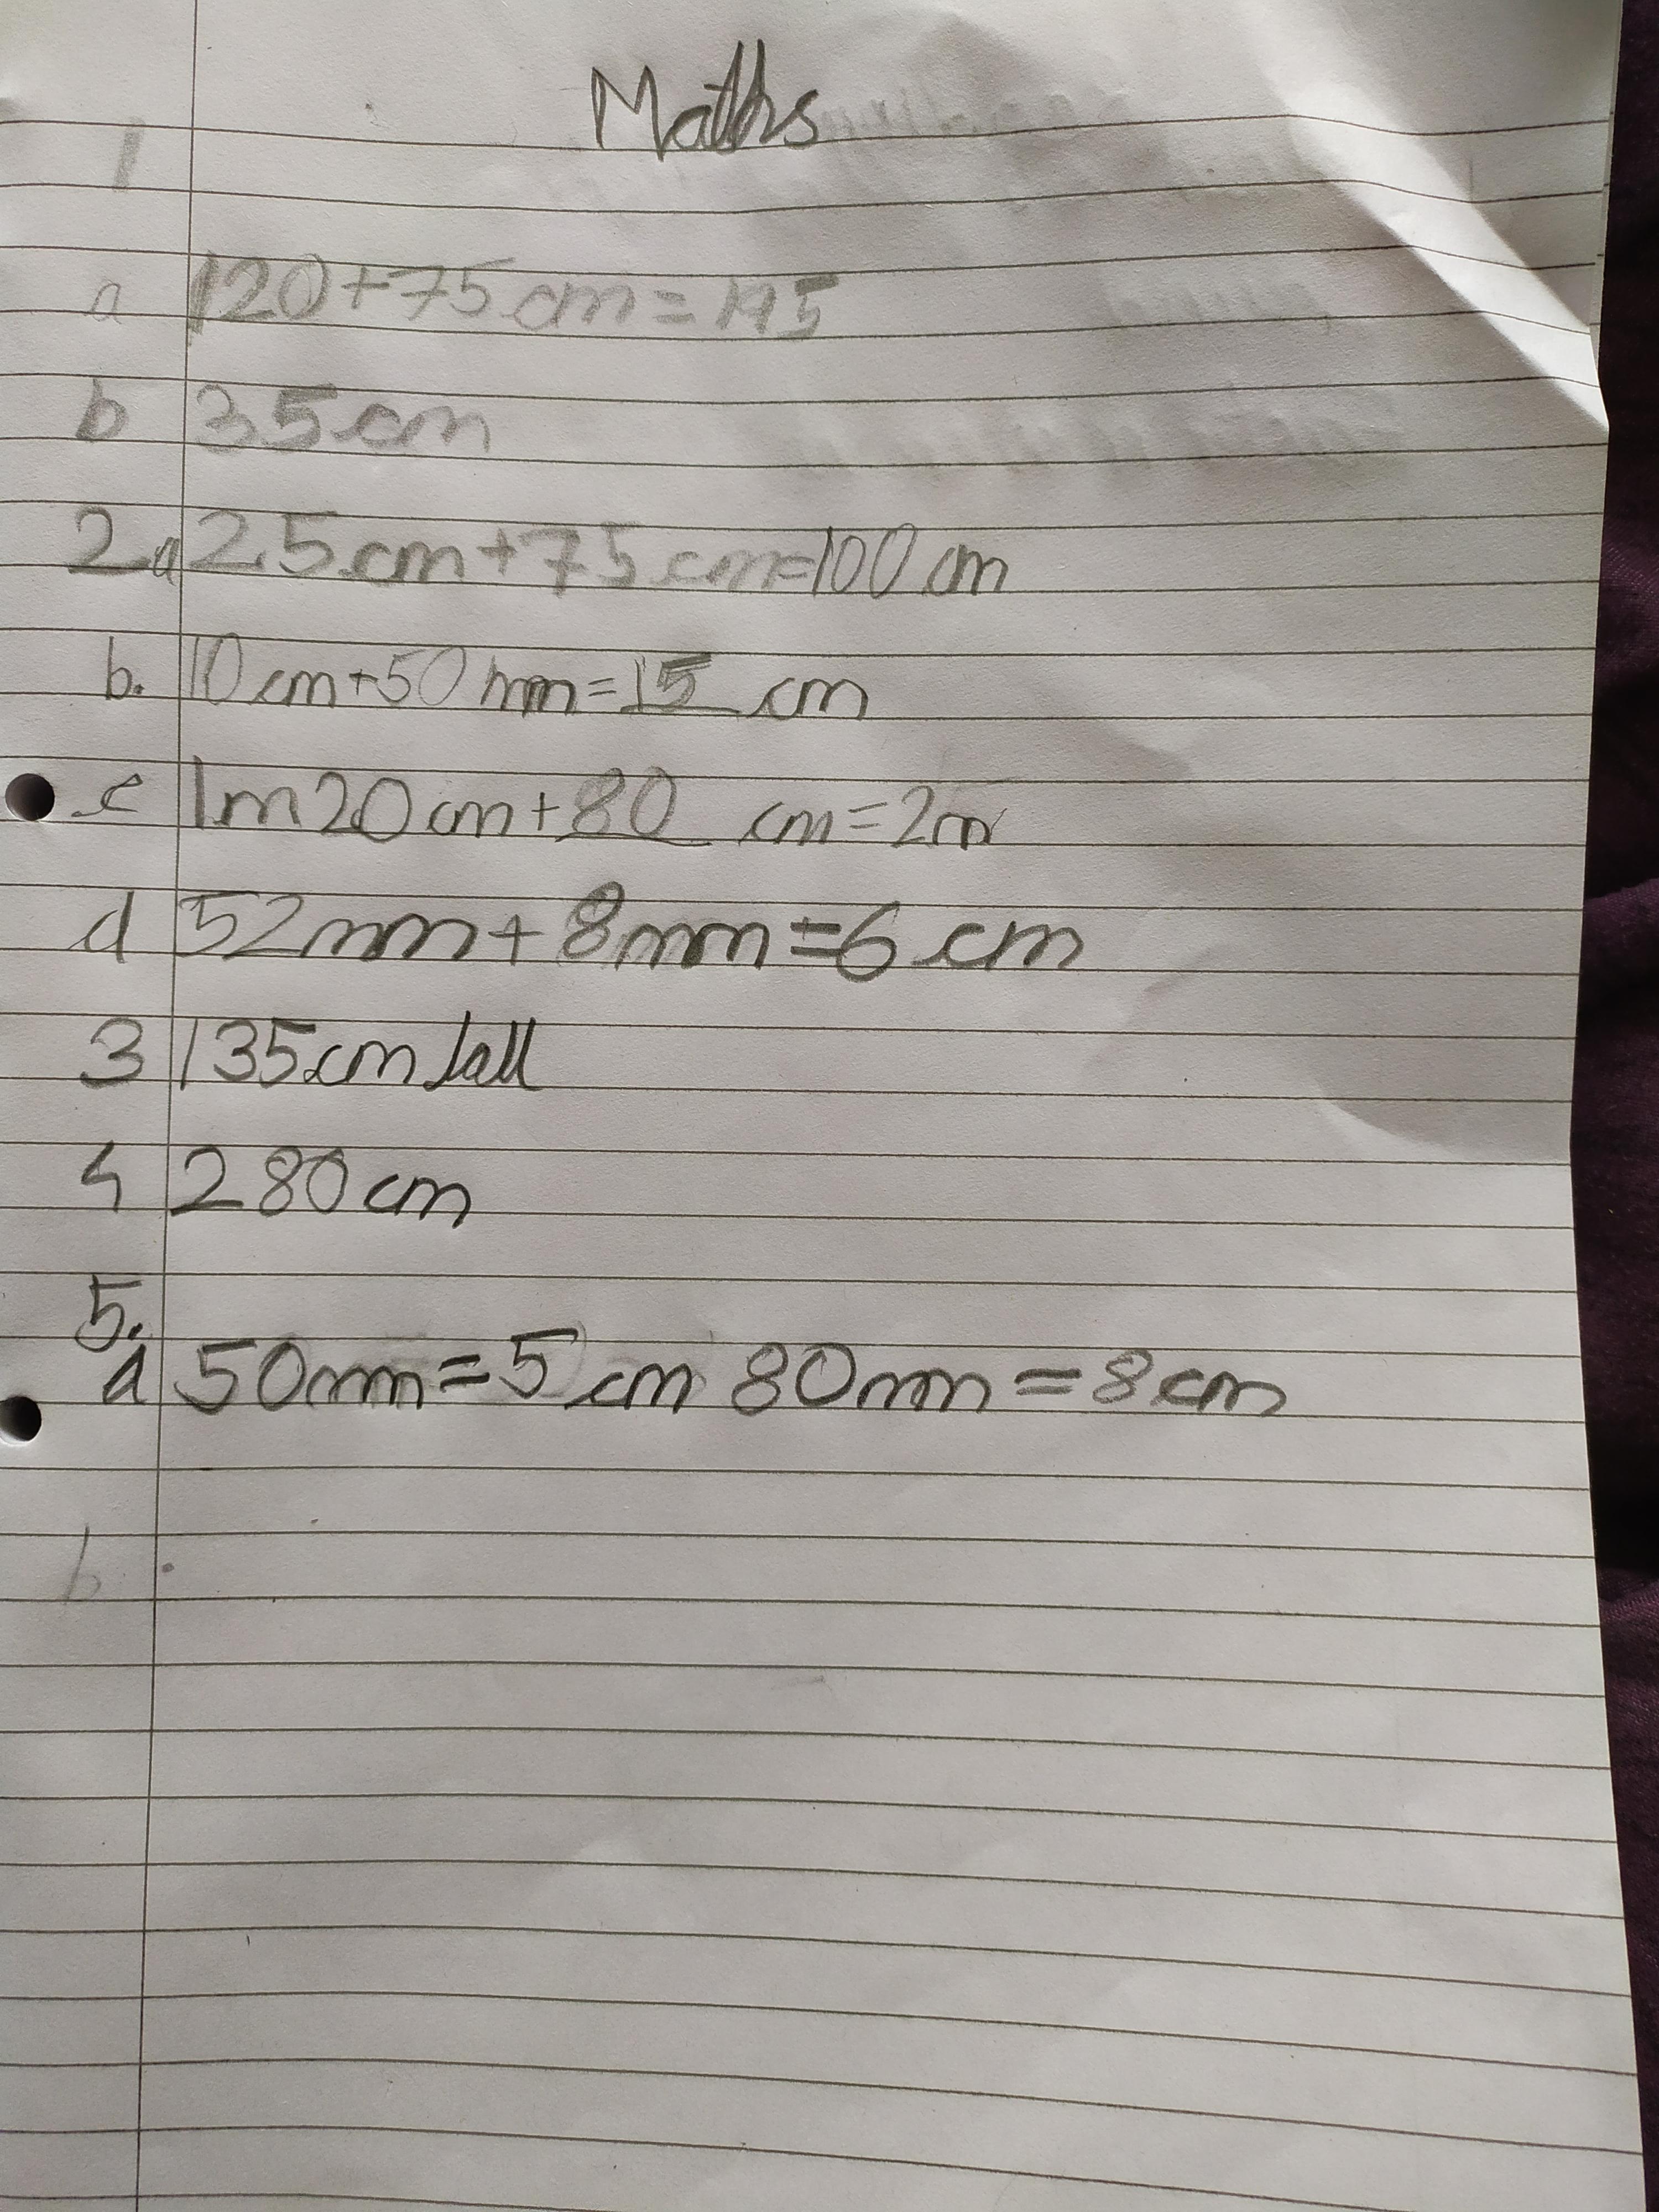 Maths
1
a 120+75cm=195
b 35cm
2a 25cm+75cm=100cm
b. 10cm+50mm=15 cm
c 1m20cm+80 cm=2m
d 52mm+8mm=6cm
3 135cm tall
4 280cm
5.
a 50mm=5cm 80mm=8cm
b